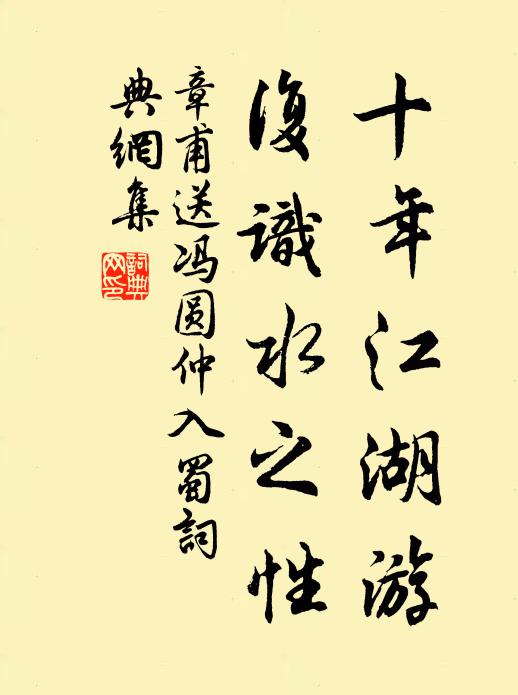 十年江湖游
復識水之性
章甫送冯圆仲入蜀詞
典網集
詞典
网印